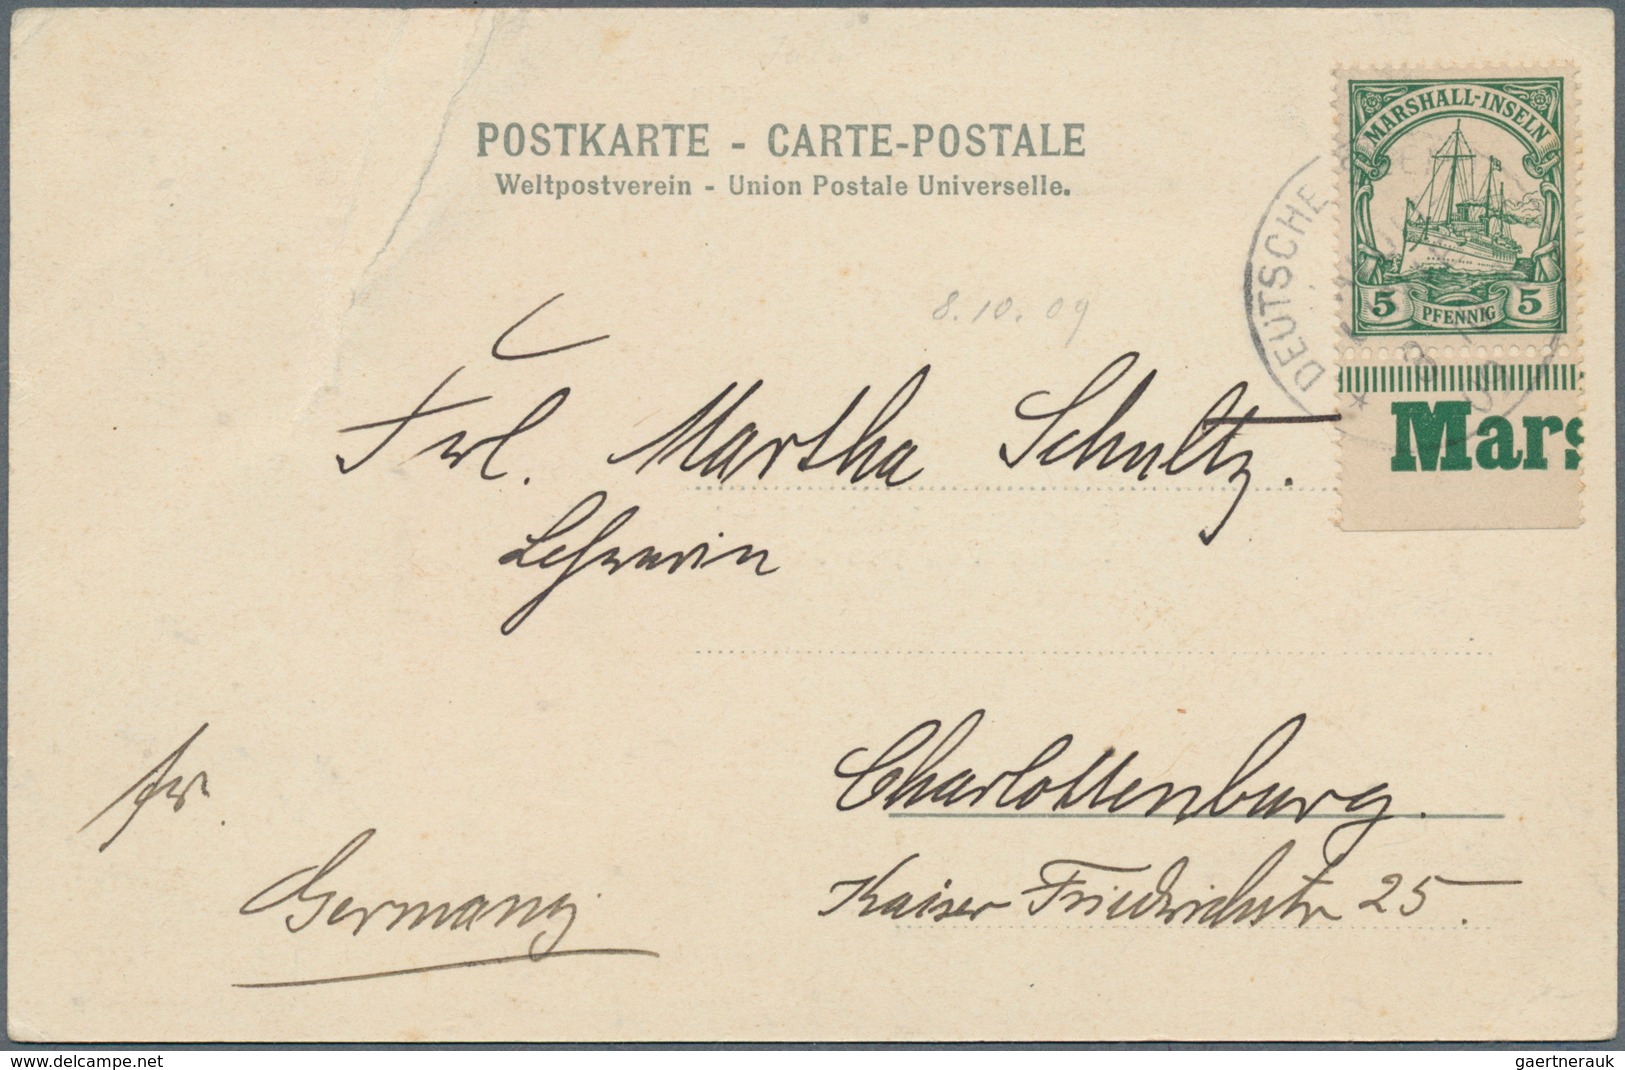 POSTKARTE - CARTE-POSTALE
Weltpostverein - Union Postale Universelle.
MARSHALL-INSELN
5 PFENNIG 5
DEUTSCHE
Mars
8.10.09
Frl. Martha Schultz.
Lehrerin
Charlottenburg.
Kaiser Friedrichstr 25.
fr.
Germany
delcampe.net
gaertnerauk